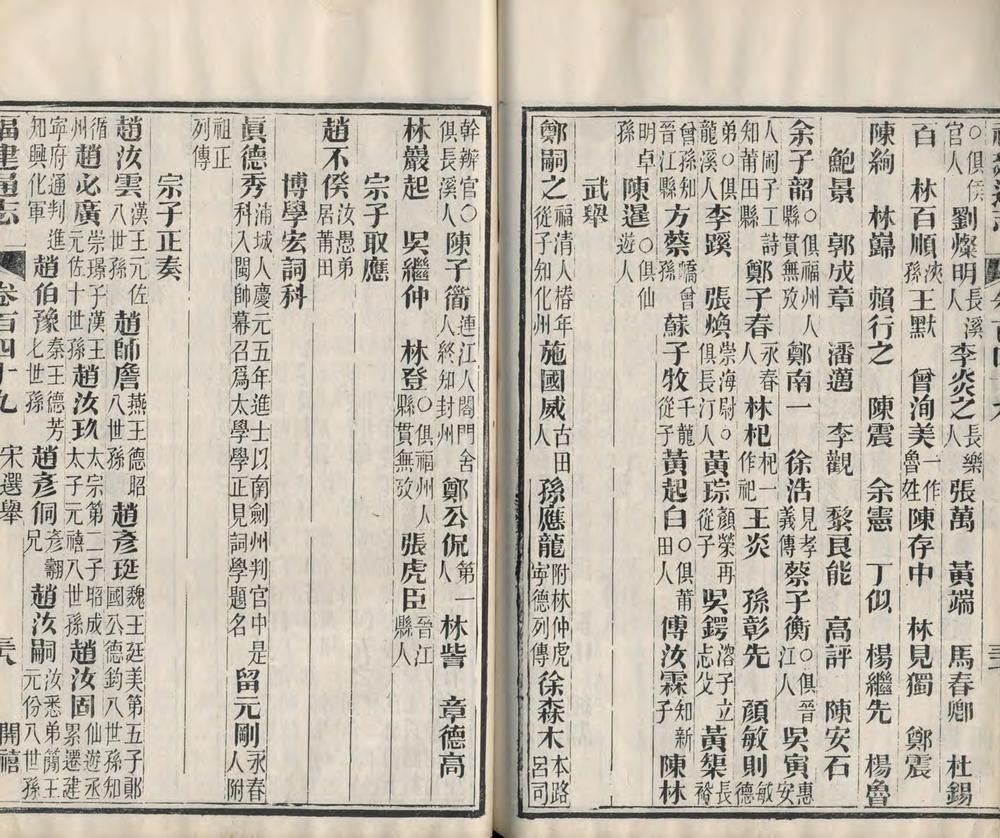 ○俱侯官人 劉燦明長溪人 李炎之長樂人 張萬 黃端 馬春卿 杜錫
百 林百順浹孫 王默 曾洵美一作魯姓 陳存中 林見獨 鄭震
陳綯 林蘬 賴行之 陳震 余憲 丁似 楊繼先 楊魯
鮑景 郭成章 潘邁 李觀 黎良能 高評 陳安石
余子韶○俱福州人縣貫無攷 鄭南一 徐浩見孝義傳 蔡子衡○俱晉江人 吳寅惠安
人岡子工詩知莆田縣 鄭子春永春人 林杞杞一作祀 王炎 孫彰先 顏敏則敏德
弟○俱龍溪人 李蹊 張煥崇海尉○俱長汀人 黃琮顏榮再從子 吳鍔溶子立忐父 黃榘裕長
曾孫知晉江縣 方蔡嶠曾孫 蘇子牧千龍從子 黃起白○俱莆田人 傅汝霖知新子 陳林
明卓孫 陳暹○俱仙遊人
武舉
鄭嗣之福清人椿年從子知化州 施國威古田人 孫應龍附林仲虎寧德列傳 徐森木本路呂司
幹辦官○俱長溪人 陳子衠連江人閤門舍人終知封州 鄭公侃第一人 林訾 章德高
林巖起 吳繼仲 林登○俱福州人縣貫無攷 張虎臣晉江縣人
宗子取應
趙不僁汝愚弟居莆田
博學宏詞科
眞德秀浦城人慶元五年進士以南劍州判官中是科入閩帥幕召爲太學學正見詞學題名 留元剛永春人附
祖正列傳
宗子正奏
趙汝雲漢王元佐八世孫 趙師詹燕王德昭八世孫 趙彥珽魏王廷美第五子鄖國公德鈞八世孫知
循州 趙必廣崇璟子漢王元佐十世孫 趙汝玖太宗第二子昭成太子元禧八世孫 趙汝固仙遊丞累遷建
寧府通判進知興化軍 趙伯豫秦王德芳七世孫 趙彥侗彥翻兄 趙汝嗣汝悉弟簡王元份八世孫
福建通志 卷百四十九 宋選舉 開禧